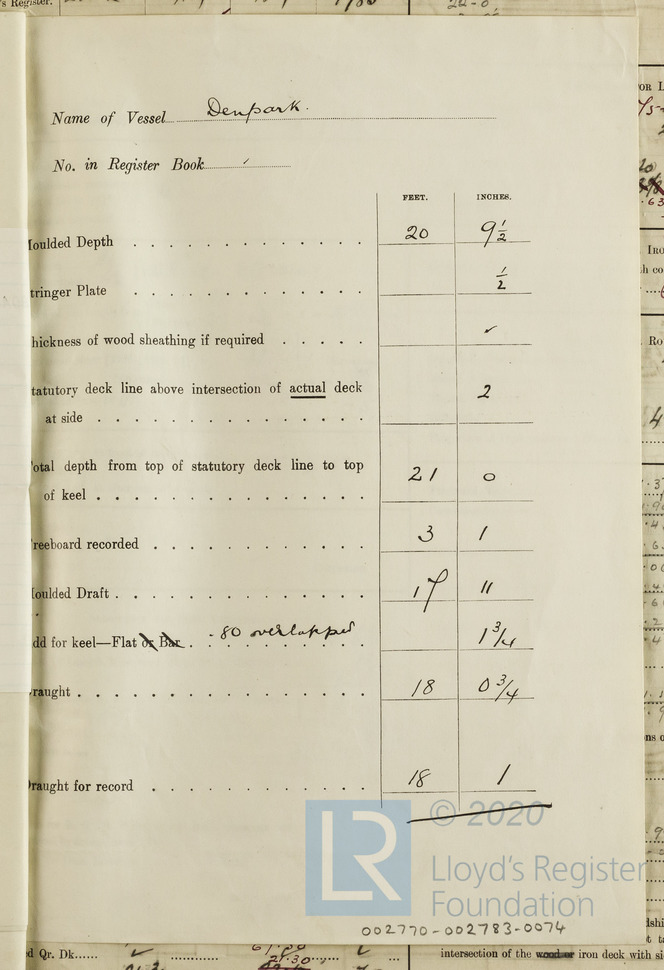 Name of Vessel Denpark.
No. in Register Book
FEET. INCHES.
oulded Depth 20 9 1/2
tringer Plate 1/2
hickness of wood sheathing if required ✓
tatutory deck line above intersection of actual deck
at side 2
otal depth from top of statutory deck line to top
of keel 21 0
reeboard recorded 3 1
oulded Draft 17 11
dd for keel—Flat or Bar .80 overlapped 1 3/4
raught 18 0 3/4
raught for record 18 1
© 2020
LR
Lloyd's Register
Foundation
002770-002783-0074
d Qr. Dk......
intersection of the wood or iron deck with